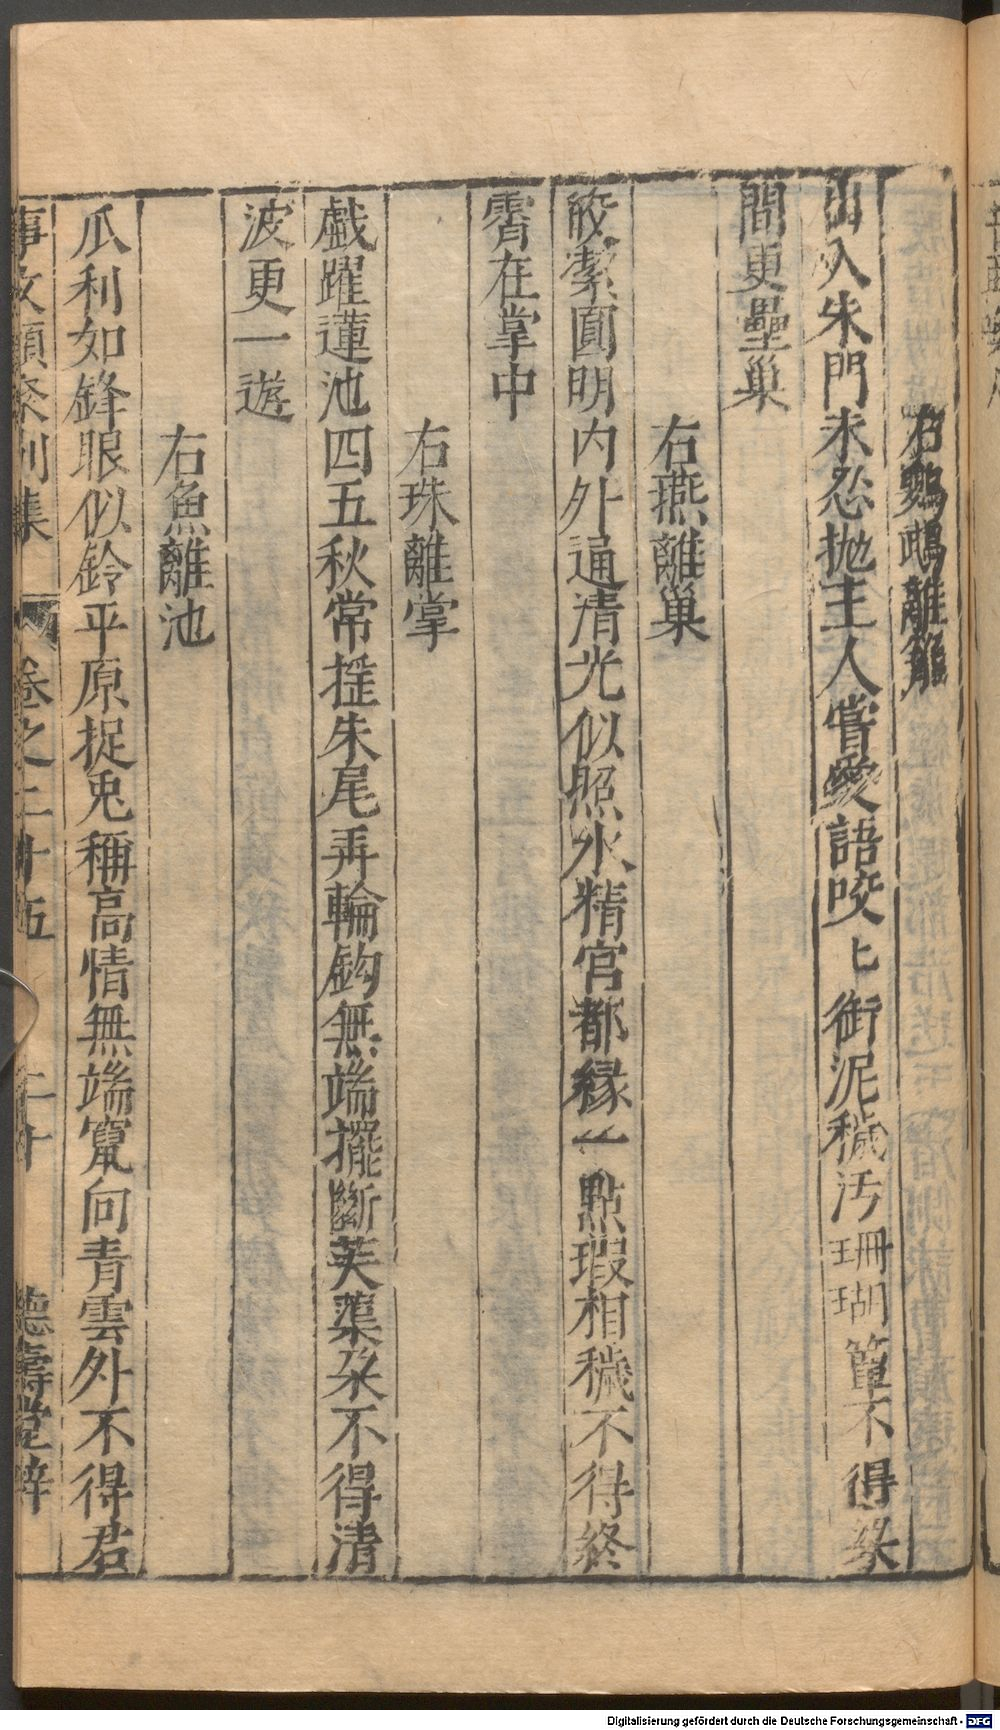 右鸚鵡離籠
出入朱門未忍抛主人嘗愛語咬〻街泥穢污珊瑚簟不得梁
間更壘巢
右燕離巢
皎潔圓明内外通清光似照水精宮都緣一點瑕相穢不得終
霄在掌中
右珠離掌
戲躍蓮池四五秋常摇朱尾弄輪鈎無端擺斷芙蕖朶不得清
波更一遊
右魚離池
爪利如鋒眼似鈴平原捉兎稱高情無端竄向青雲外不得君
事文類聚別集 卷之二十五 二十 德壽堂梓
Digitalisierung gefördert durch die Deutsche Forschungsgemeinschaft - DFG